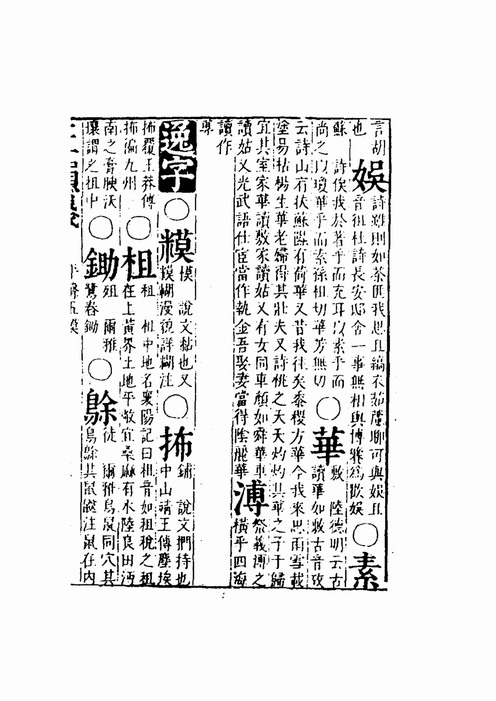 言胡
也
娛
詩雖則如荼匪我思且縞衣茹藘聊可與娛且
音徂杜詩長安邸舍一事無相與博賽為歡娛
○素
蘇 詩俟我於著乎而充耳以素乎而
尚之以瓊華乎而素孫祖切華芳無切
○華
敷 陸德明云古
讀華如敷古音攷
云詩山有扶蘇隰有荷華又昔我往矣黍稷方華今我來思雨雪載
塗易枯楊生華老婦得其壯夫又詩桃之夭夭灼灼其華之子于歸
宜其室家華讀敷家讀姑又有女同車顏如舜華車
讀姑又光武語仕宦當作執金吾娶妻當得陰麗華
溥
祭義溥之
橫乎四海
讀作
尃
逸字
○糢
模 說文黏也又
模糊漫貌詳糊注
○抪
鋪 說文捫持也
中山靖王傳塵埃
抪覆王莽傳
抪徧九州
○柤
租 柤中地名襄陽記曰柤音如租稅之租
在上黃界土地平敞宜桑麻有水陸良田沔
南之膏腴沃
壤謂之柤中
○鋤
徂 爾雅
鷺舂鋤
○鵌
徒 爾雅鳥鼠同穴其
鳥鵌其鼠鼵注鼠在内
平聲五模